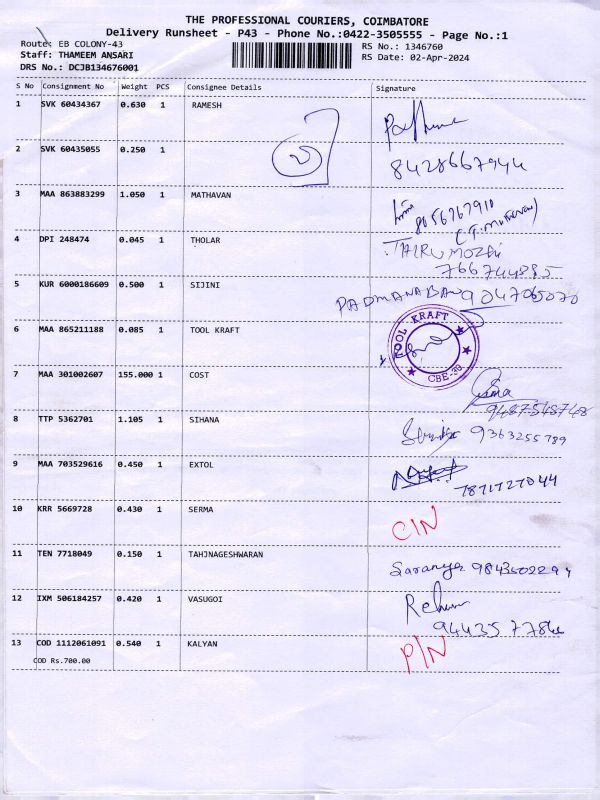 THE PROFESSIONAL COURIERS, COIMBATORE
Delivery Runsheet - P43 - Phone No.:0422-3505555 - Page No.:1
Route: EB COLONY-43 RS No.: 1346760
Staff: THAMEEM ANSARI RS Date: 02-Apr-2024
DRS No.: DCJB134676001
S No Consignment No Weight PCS Consignee Details Signature
1 SVK 60434367 0.630 1 RAMESH
2 SVK 60435055 0.250 1 8428667944
3 MAA 863883299 1.050 1 MATHAVAN
8056767910
4 DPI 248474 0.045 1 THOLAR
766744885
5 KUR 6000186609 0.500 1 SIJINI PADMANABAN 9047065070
6 MAA 865211188 0.085 1 TOOL KRAFT TOOL KRAFT CBE-30
7 MAA 301002607 155.000 1 COST
9487548748
8 TTP 5362701 1.105 1 SIHANA 9363255789
9 MAA 703529616 0.450 1 EXTOL 7871727044
10 KRR 5669728 0.430 1 SERMA CIN
11 TEN 7718049 0.150 1 TAHJNAGESHWARAN Saranya
12 IXM 506184257 0.420 1 VASUGOI
13 COD 1112061091 0.540 1 KALYAN P/N
COD Rs.700.00